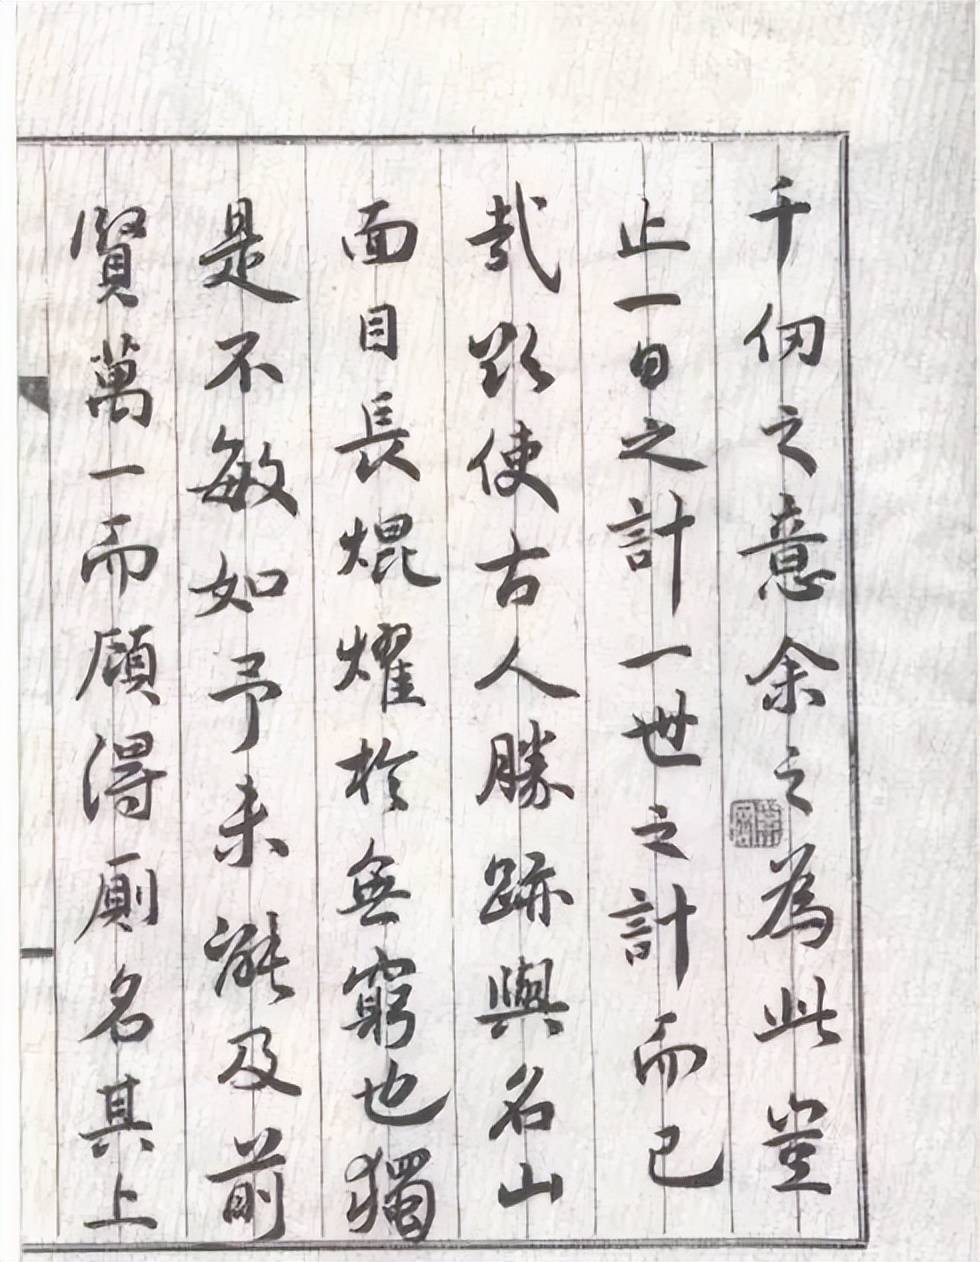 千仞之意余之為此豈
止一日之計一世之計而已
哉欲使古人勝跡與名山
面目長焜燿於無窮也獨
是不敏如予未能及前
賢萬一而願得厠名其上